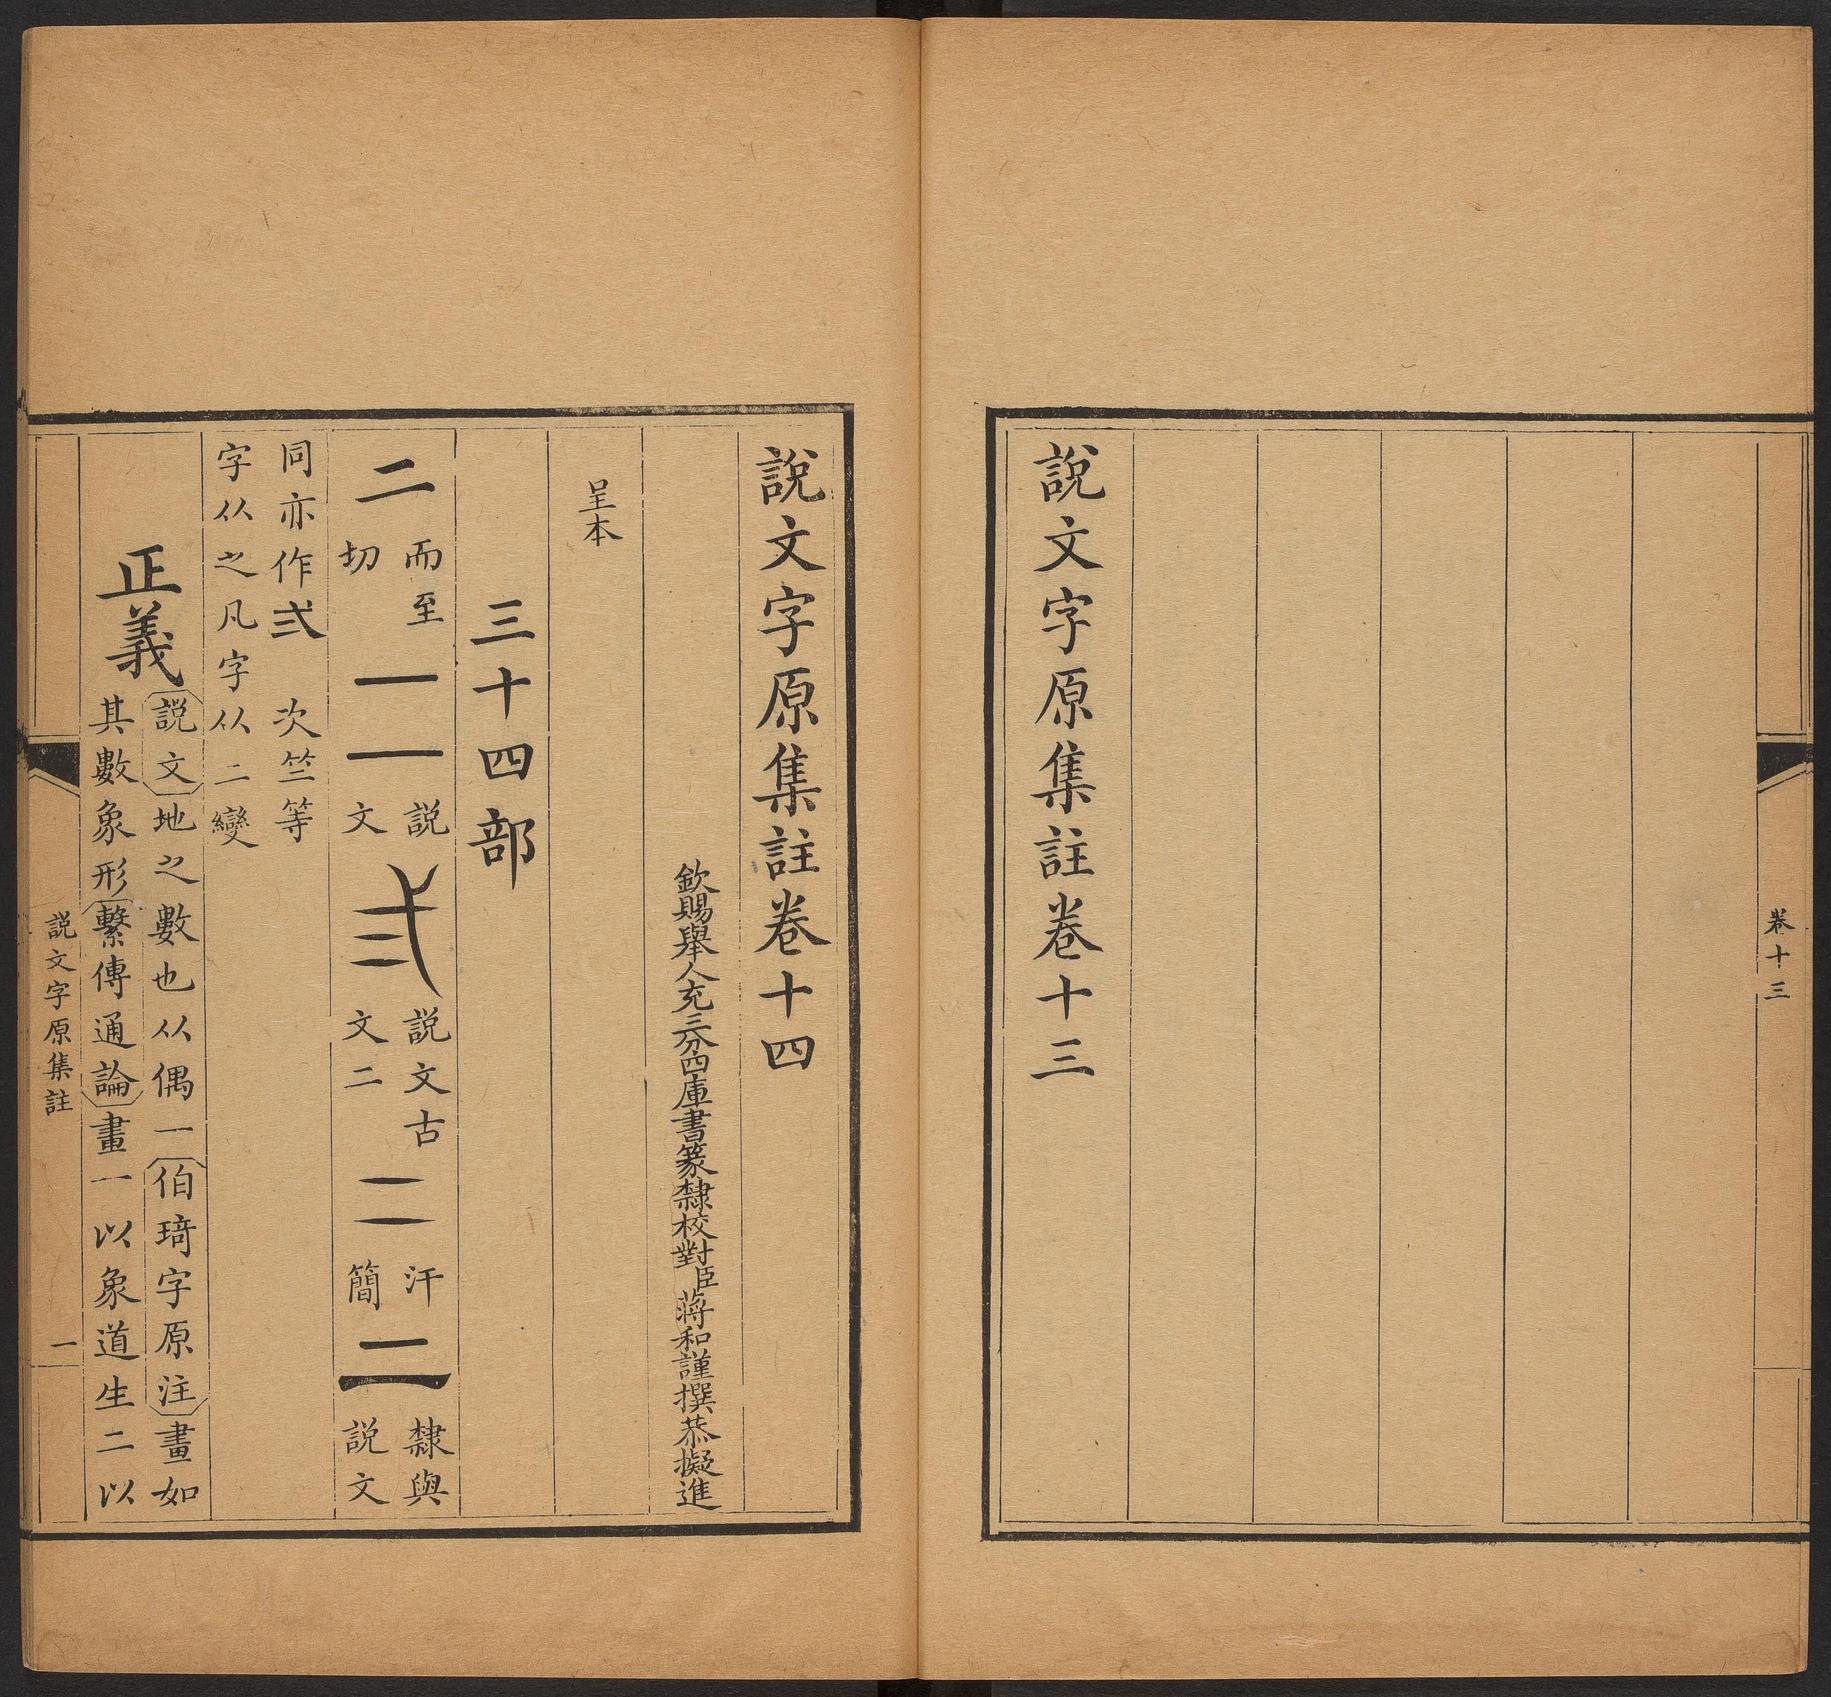 卷十三
說文字原集註卷十三
說文字原集註卷十四
欽賜舉人充三分四庫書篆隸校對臣蔣和謹撰恭擬進
呈本
三十四部
二 而至切 二 說文 弍 說文古文二 二 汗簡 二 隸與說文
同亦作弍 次竺等
字从之凡字从二變
正義 說文地之數也从偶一伯琦字原注畫如
其數象形繫傳通論畫一以象道生二以
說文字原集註 一